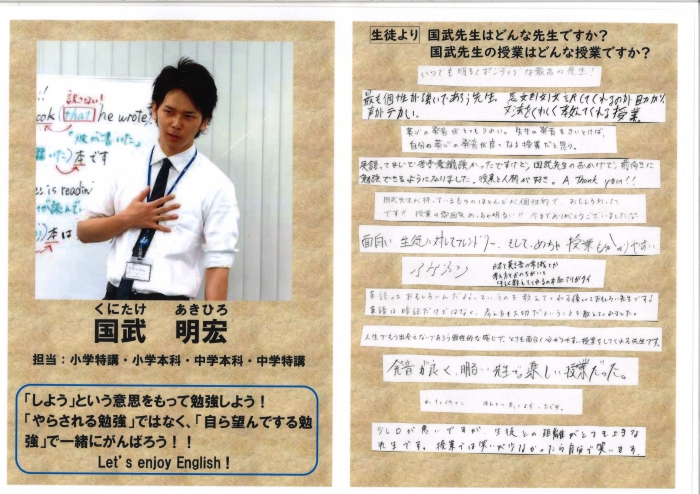 訳さない!
ook (that) he wrote!
「彼が書いた」
本です
ss is readin
本は
くにたけ あきひろ
国武 明宏
担当：小学特講・小学本科・中学本科・中学特講
「しよう」という意思をもって勉強しよう！
「やらされる勉強」ではなく、「自ら望んでする勉
強」で一緒にがんばろう！！
Let's enjoy English！
生徒より 国武先生はどんな先生ですか？
国武先生の授業はどんな授業ですか？
いつでも明るくポジティブな最高の先生！
最も個性が強いであろう先生。
声がデカい。
文法をくわしく教えてくれる授業
英語の発音がとてもうまい。先生の発音をきいとけば、
自分の英語の発音が良くなる授業だと思う。
英語ってすごく苦手意識強かったですけど、国武先生のおかげで、前向きに
勉強できるようになりました。授業と人柄が好き。A thank you!!
国武先生が持っているもののほとんどが個性的で、おもしろかった
です!! 授業の雰囲気めっちゃ明るい!! 今までありがとうございました
面白い 生徒に対してフレンドリー、そして、めちゃ 授業もわかりやすい
イケメン
日本と英語の常識とか
考え方とかのちがいも
くわしく教えてくれるの本当にありがたい
英語っておもしろいんだな、というのを教えてくれる優しくておもしろい先生です。
英語は暗記だけではなく、考える力も大切だということを教えてくれました。
人生でもう出会えないであろう個性的な感じで、とても面白く分かりやすい授業をしてくれる先生です。
発音が良く、明るい先生で楽しい授業だった。
少し口が悪いですが、生徒との距離がとても上手な
先生です。授業では笑いが少なかったら自分で笑います。